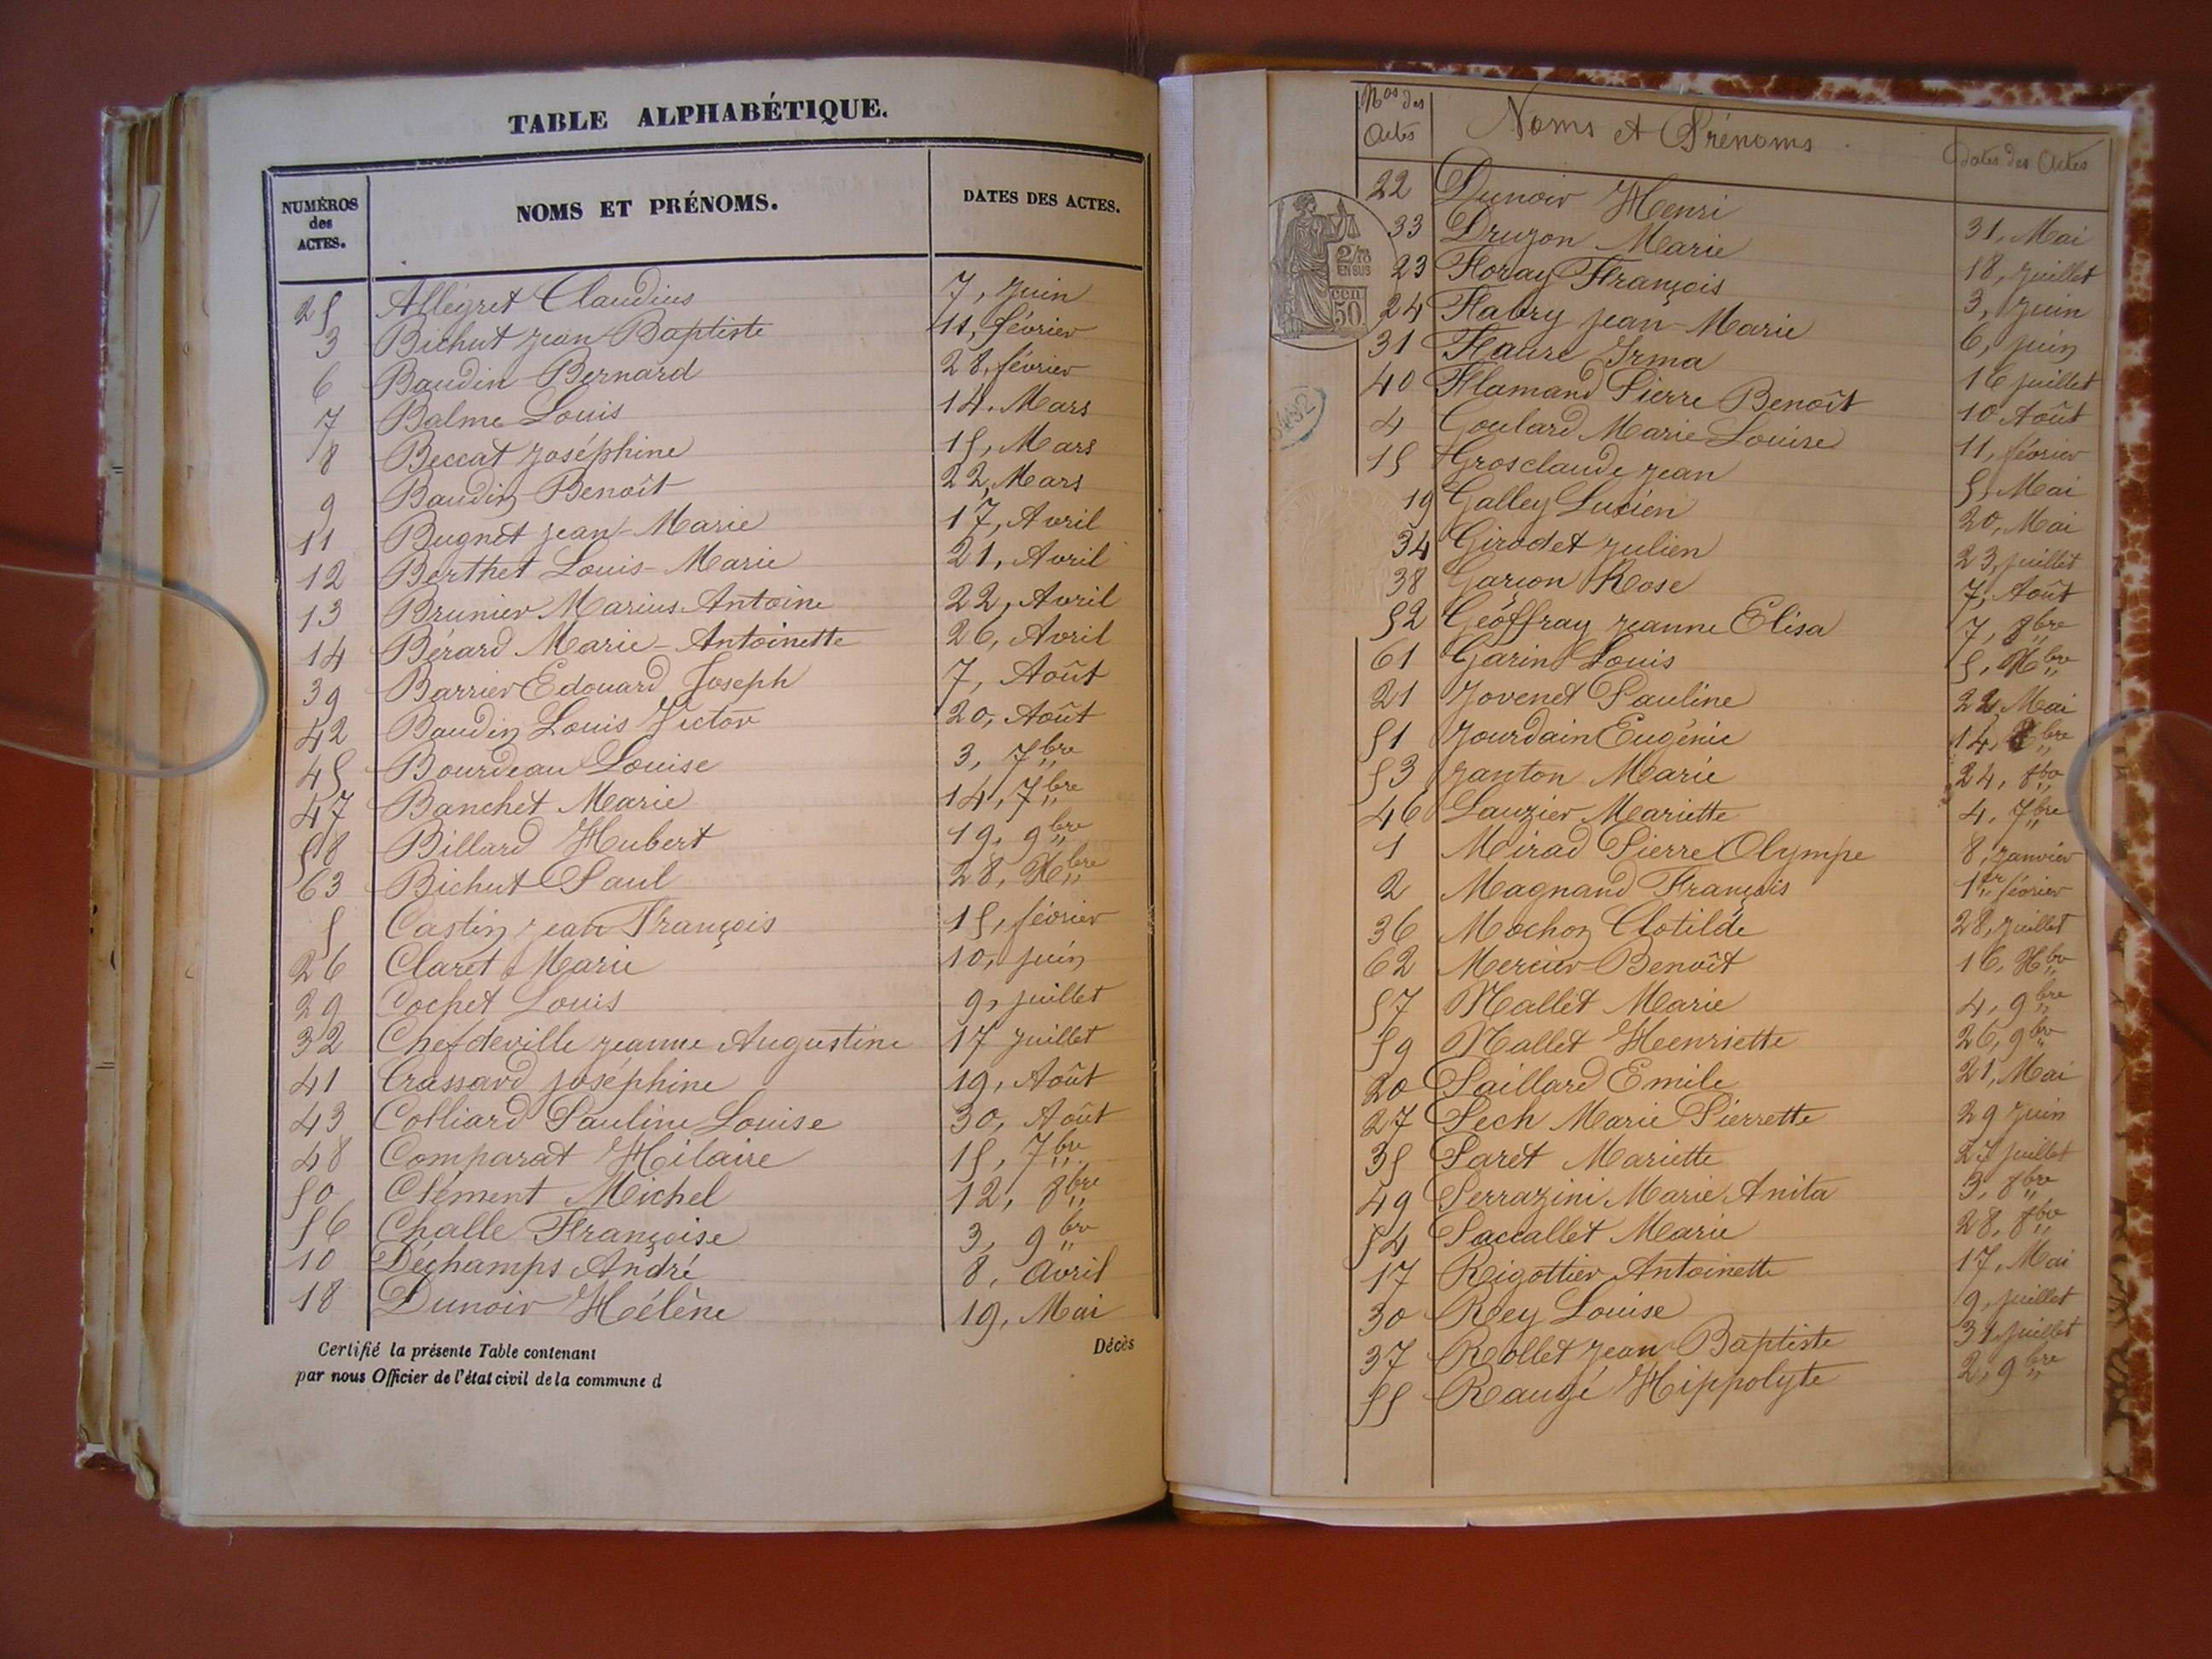 TABLE ALPHABÉTIQUE.
NUMÉROS des ACTES. NOMS ET PRÉNOMS. DATES DES ACTES.
25 Allégret Claudius 7, Juin
3 Bichut Jean Baptiste 11, février
6 Baudin Bernard 28, février
7 Balme Louis 14. Mars
8 Beccat Joséphine 15, Mars
9 Baudin Benoît 22, Mars
11 Bugnet Jean-Marie 17, Avril
12 Berthet Louis-Marie 21, Avril
13 Brunier Marius Antoine 22, Avril
14 Bérard Marie-Antoinette 26, Avril
39 Barrier Edouard Joseph 7, Août
42 Baudin Louis Victor 20, Août
45 Bourdeau Louise 3, 7bre
47 Banchet Marie 14, 7bre
58 Billard Hubert 19, 9bre
63 Bichut Paul 28, Xbre
5 Castin Jean François 15, février
26 Claret Marie 10, juin
29 Cochet Louis 9, juillet
32 Chefdeville Jeanne Augustine 17 Juillet
41 Crassard Joséphine 19, Août
43 Colliard Pauline Louise 30, Août
48 Comparat Hilaire 15, 7bre
50 Clément Michel 12, 8bre
56 Challe Françoise 3, 9bre
10 Déchamps André 8, Avril
18 Dunoir Hélène 19, Mai
Certifié la présente Table contenant Décès
par nous Officier de l'état civil de la commune d
Nos des Actes Noms et Prénoms Dates des Actes
22 Dunoir Henri 31, Mai
33 Druzon Marie 18, Juillet
23 Foray François 3, Juin
24 Fabry Jean-Marie 6, juin
31 Faure Irma 16 juillet
40 Flamand Pierre Benoît 10 Août
4 Goulard Marie Louise 11, février
15 Grosclaude Jean 5, Mai
19 Galley Lucien 20, Mai
34 Girodet Julien 23, juillet
38 Garçon Rose 7, Août
52 Géoffray Jeanne Elisa 7, 8bre
61 Garin Louis 5, Xbre
21 Jovenet Pauline 22 Mai
51 Jourdain Eugénie 14, 8bre
53 Janton Marie 24, 8bre
46 Lauzier Mariette 4, 7bre
1 Mirad Pierre Olympe 8, Janvier
2 Magnand François 1er février
36 Mochon Clotilde 28, juillet
62 Mercier Benoît 16, Xbre
57 Nallet Marie 4, 9bre
59 Nallet Henriette 26, 9bre
20 Paillard Emile 21, Mai
27 Pech Marie Pierrette 29 Juin
35 Paret Mariette 27 juillet
49 Perrazini Marie Anita 3, 8bre
54 Paccallet Marie 28, 8bre
17 Rigottier Antoinette 17, Mai
30 Rey Louise 9, juillet
37 Rollet Jean Baptiste 31, juillet
55 Rauzé Hippolyte 2, 9bre
2/10 EN SUS
50 cen